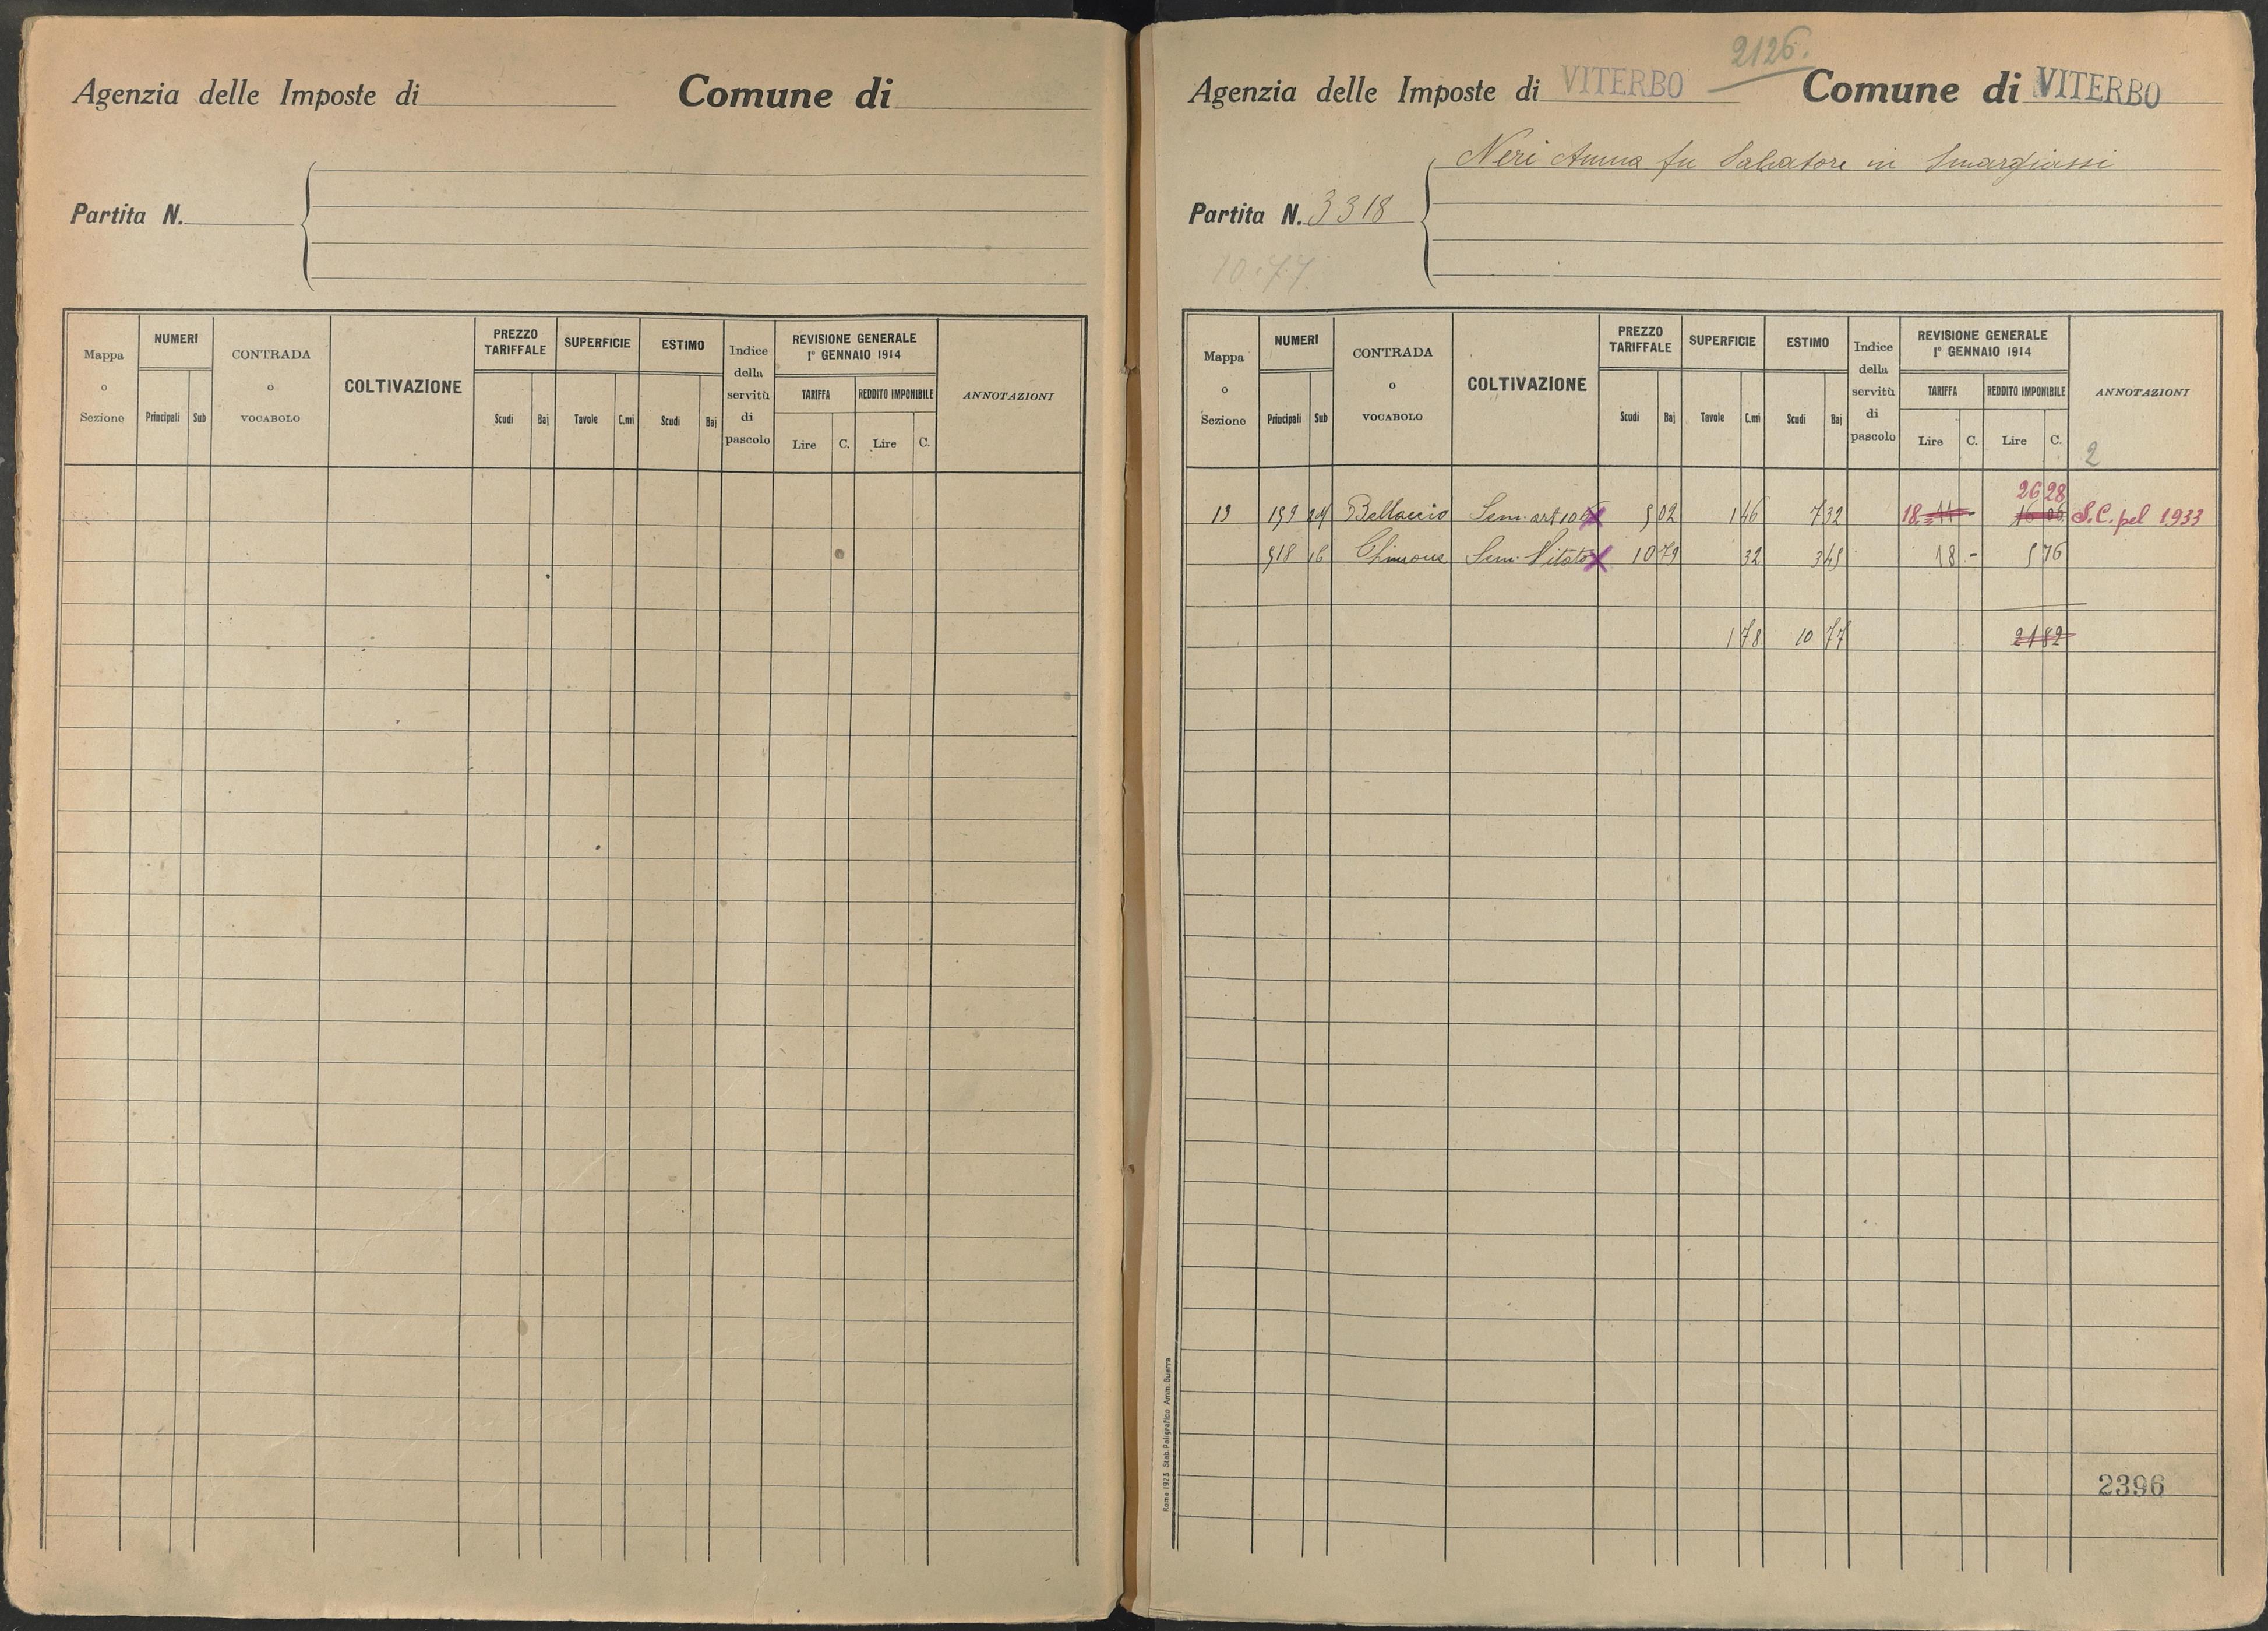 Agenzia delle Imposte di Comune di
Partita N.
Mappa o Sezione NUMERI Principali Sub CONTRADA o VOCABOLO COLTIVAZIONE PREZZO TARIFFALE Scudi Baj SUPERFICIE Tavole C.mi ESTIMO Scudi Baj Indice della servitù di pascolo REVISIONE GENERALE 1° GENNAIO 1914 TARIFFA Lire C. REDDITO IMPONIBILE Lire C. ANNOTAZIONI
2126.
Agenzia delle Imposte di VITERBO Comune di VITERBO
Neri Anna fu Salvatore in Smargiassi
Partita N. 3318
10.77
Mappa o Sezione NUMERI Principali Sub CONTRADA o VOCABOLO COLTIVAZIONE PREZZO TARIFFALE Scudi Baj SUPERFICIE Tavole C.mi ESTIMO Scudi Baj Indice della servitù di pascolo REVISIONE GENERALE 1° GENNAIO 1914 TARIFFA Lire C. REDDITO IMPONIBILE Lire C. ANNOTAZIONI
2
26 28
13 159 Bellaccio Sem. art 5 02 1 46 7 32 18 11 - 16 06 S.C. pel 1933
518 Sem. Vitato 10 79 32 3 45 18 - 5 76
1 78 10 77 21 82
2396
Roma 1923 Stab. Poligrafico Amm. Guerra